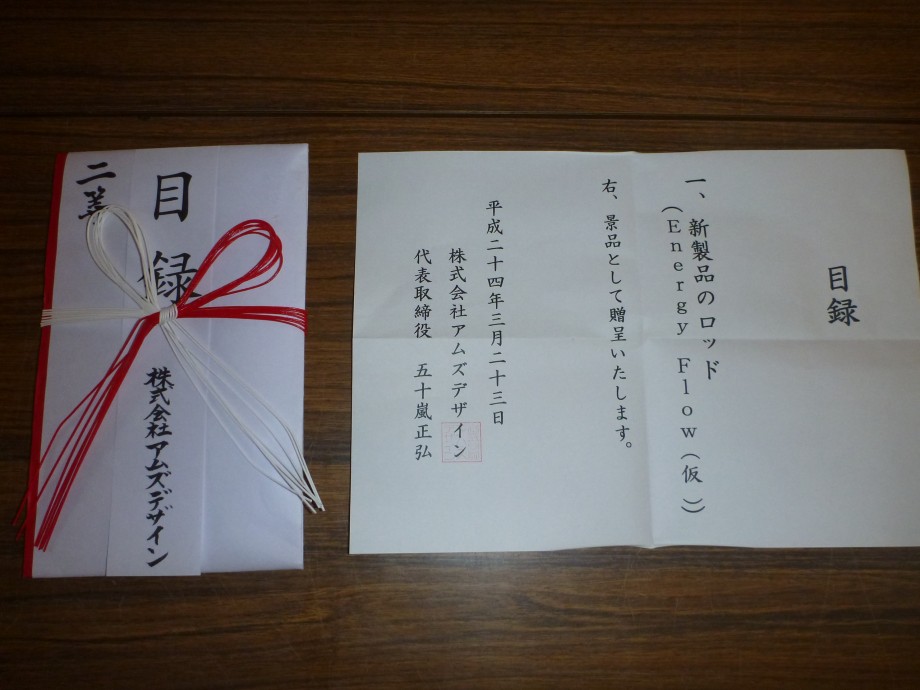 二等
目録
株式会社アムズデザイン
目録
一、新製品のロッド
(Energy Flow(仮))
右、景品として贈呈いたします。
平成二十四年三月二十三日
株式会社アムズデザイン
代表取締役 五十嵐正弘